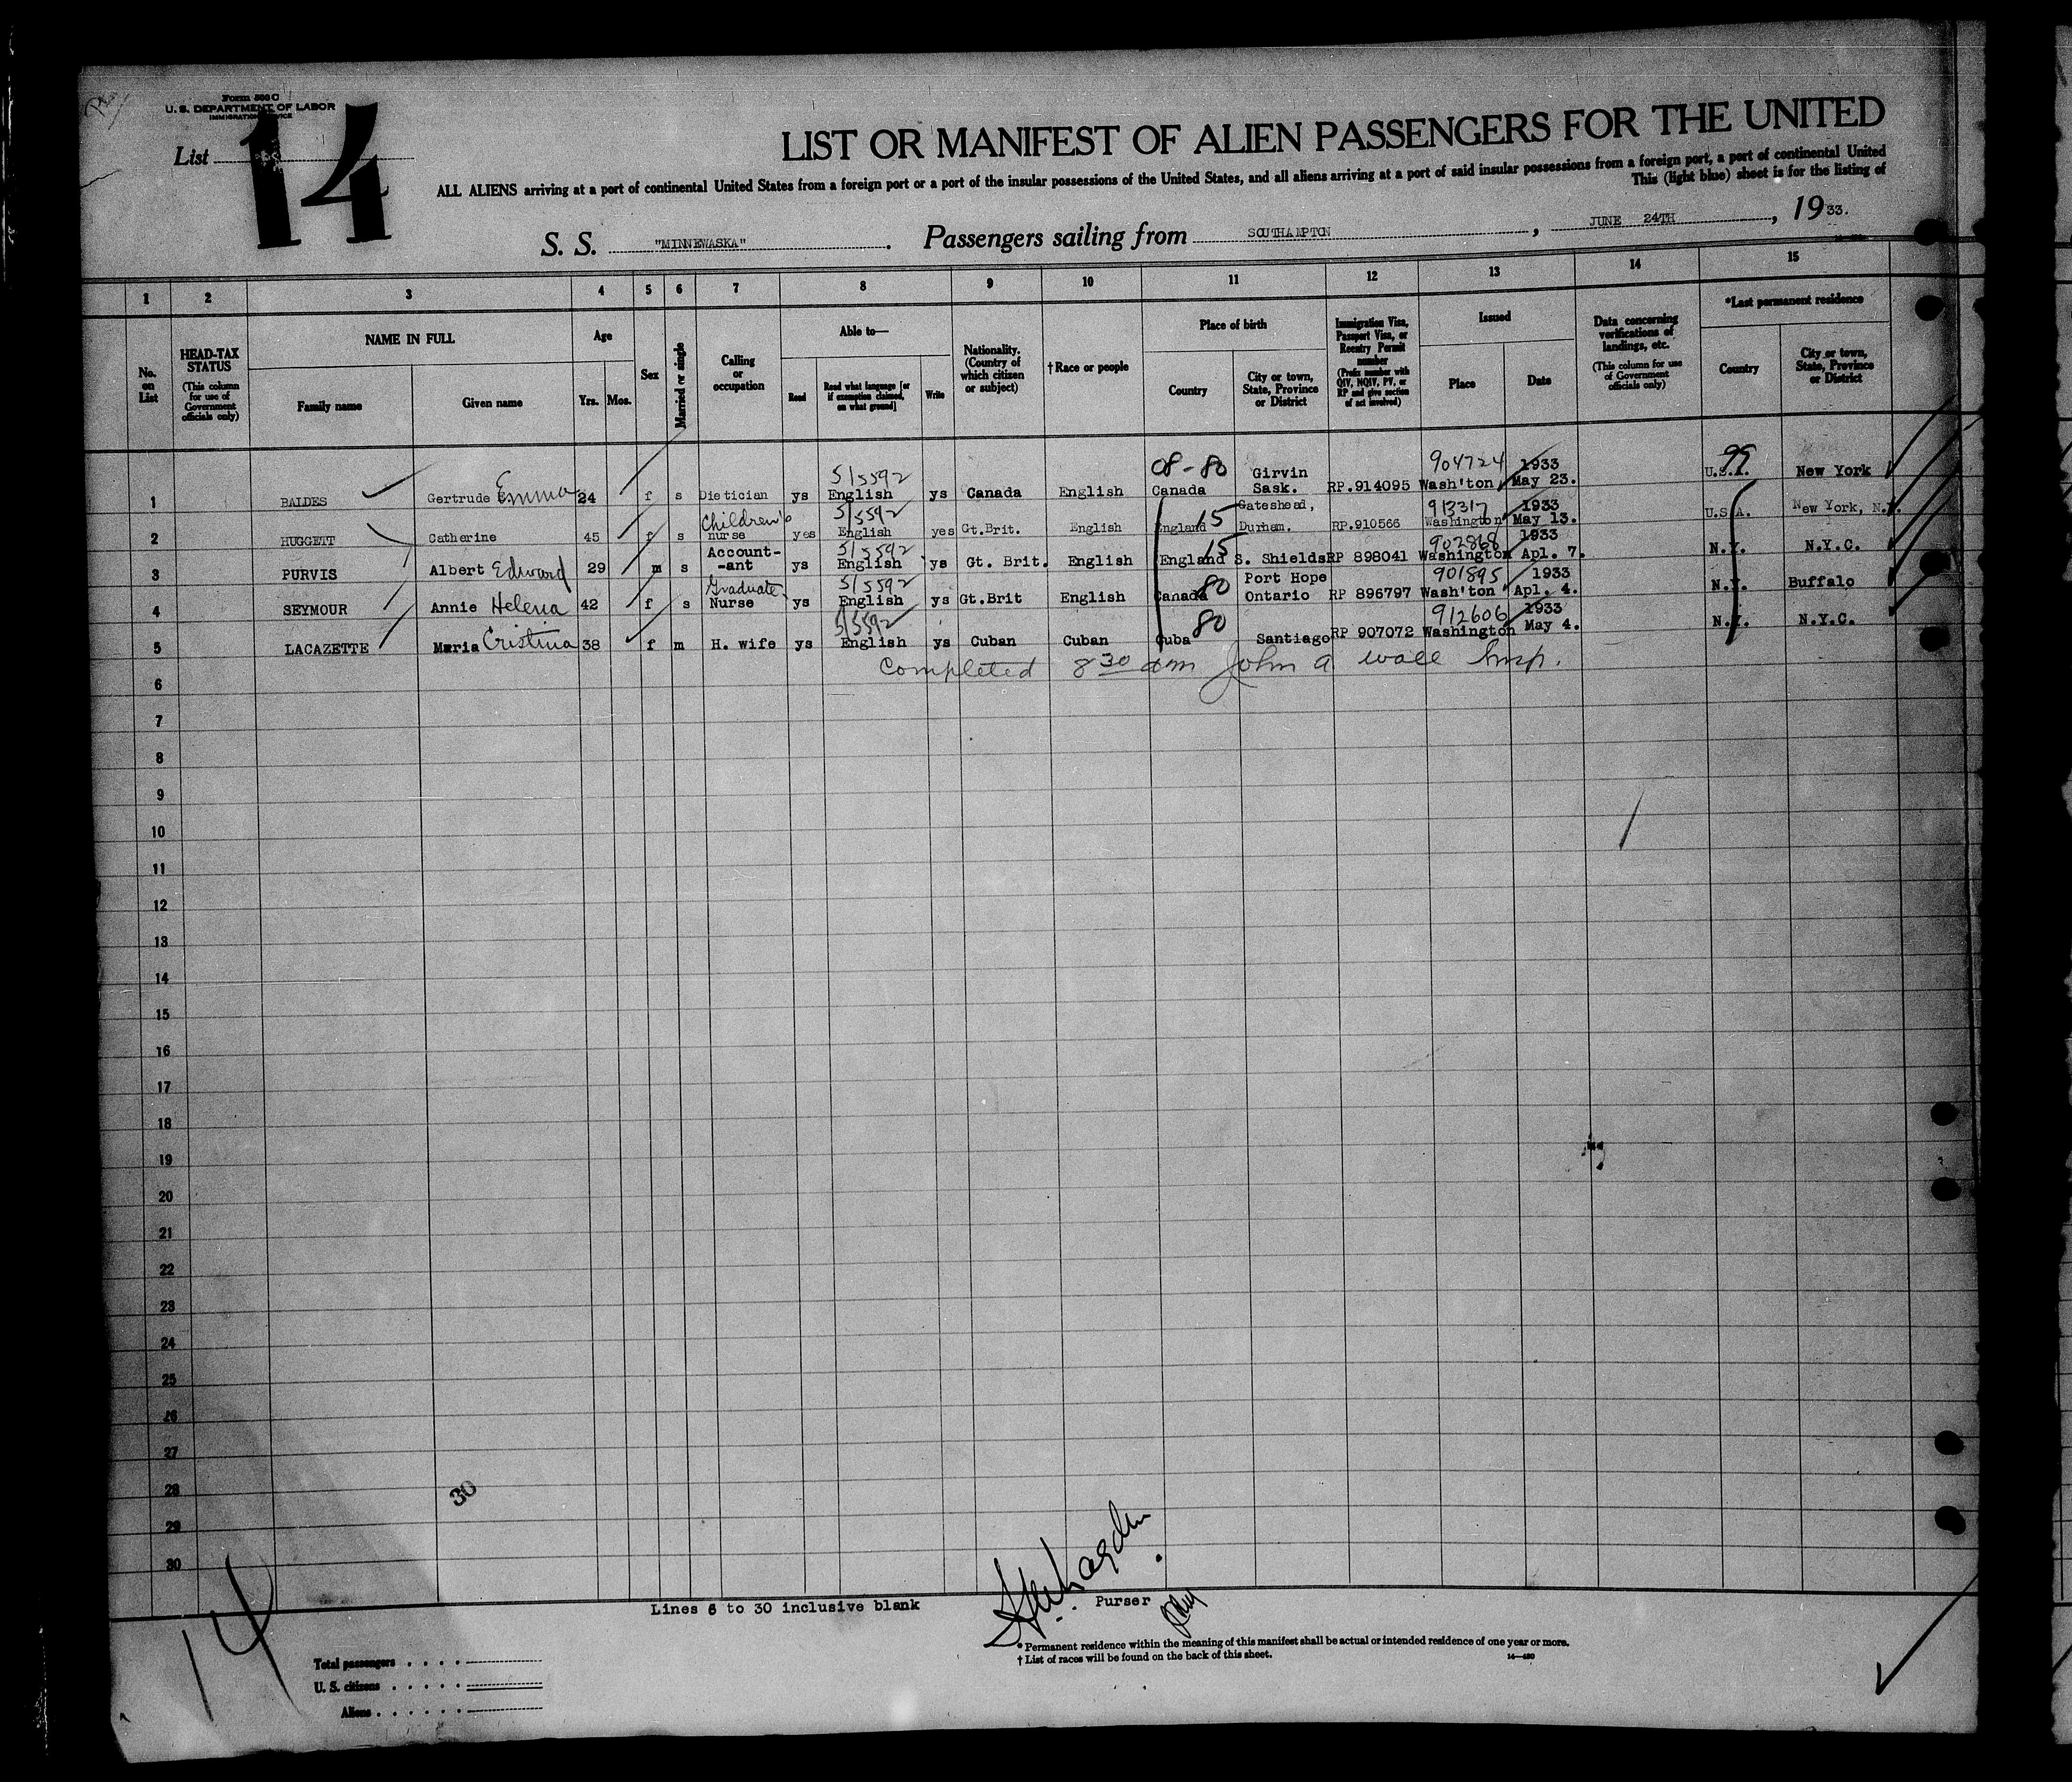 Form 500 C
U. S. DEPARTMENT OF LABOR
IMMIGRATION SERVICE
List 14
LIST OR MANIFEST OF ALIEN PASSENGERS FOR THE UNITED
ALL ALIENS arriving at a port of continental United States from a foreign port or a port of the insular possessions of the United States, and all aliens arriving at a port of said insular possessions from a foreign port, a port of continental United
This (light blue) sheet is for the listing of
S. S. "MINNEWASKA". Passengers sailing from SOUTHAMPTON, JUNE 24TH, 1933.
1 2 3 4 5 6 7 8 9 10 11 12 13 14 15
No. on List
HEAD-TAX STATUS (This column for use of Government officials only)
NAME IN FULL
Family name
Given name
Age
Yrs. Mos.
Sex
Married or single
Calling or occupation
Able to—
Read
Read what language [or if exemption claimed, on what ground]
Write
Nationality. (Country of which citizen or subject)
†Race or people
Place of birth
Country
City or town, State, Province or District
Immigration Visa, Passport Visa, or Reentry Permit number (Prefix number with QIV, NQIV, PV, or RP and give section of act involved)
Issued
Place
Date
Data concerning verifications of landings, etc. (This column for use of Government officials only)
*Last permanent residence
Country
City or town, State, Province or District
5/5592 08-80 Girvin 904724 1933 99
1 BALDES Gertrude Emma 24 f s Dietician ys English ys Canada English Canada Sask. RP.914095 Wash'ton May 23. U.S.A. New York
Children's 5/5592 15 Gateshead, 913317 1933
2 HUGGETT Catherine 45 f s nurse yes English yes Gt.Brit. English England Durham. RP.910566 Washington May 13. U.S.A. New York, N.Y.
Account- 5/5592 15 902868 1933
3 PURVIS Albert Edward 29 m s -ant ys English ys Gt. Brit. English England S. Shields RP 898041 Washington Apl. 7. N.Y. N.Y.C.
Graduate 5/5592 80 Port Hope 901895 1933
4 SEYMOUR Annie Helena 42 f s Nurse ys English ys Gt.Brit English Canada Ontario RP 896797 Wash'ton Apl. 4. N.Y. Buffalo
5/5592 80 912606 1933
5 LACAZETTE Maria Cristina 38 f m H. wife ys English ys Cuban Cuban Cuba Santiago RP 907072 Washington May 4. N.Y. N.Y.C.
Completed 8 30 am John A Wall Insp.
6
7
8
9
10
11
12
13
14
15
16
17
18
19
20
21
22
23
24
25
26
27
28
29
30
30
14
Lines 6 to 30 inclusive blank
Purser
*Permanent residence within the meaning of this manifest shall be actual or intended residence of one year or more.
†List of races will be found on the back of this sheet.
14—480
Total passengers
U. S. citizens
Aliens